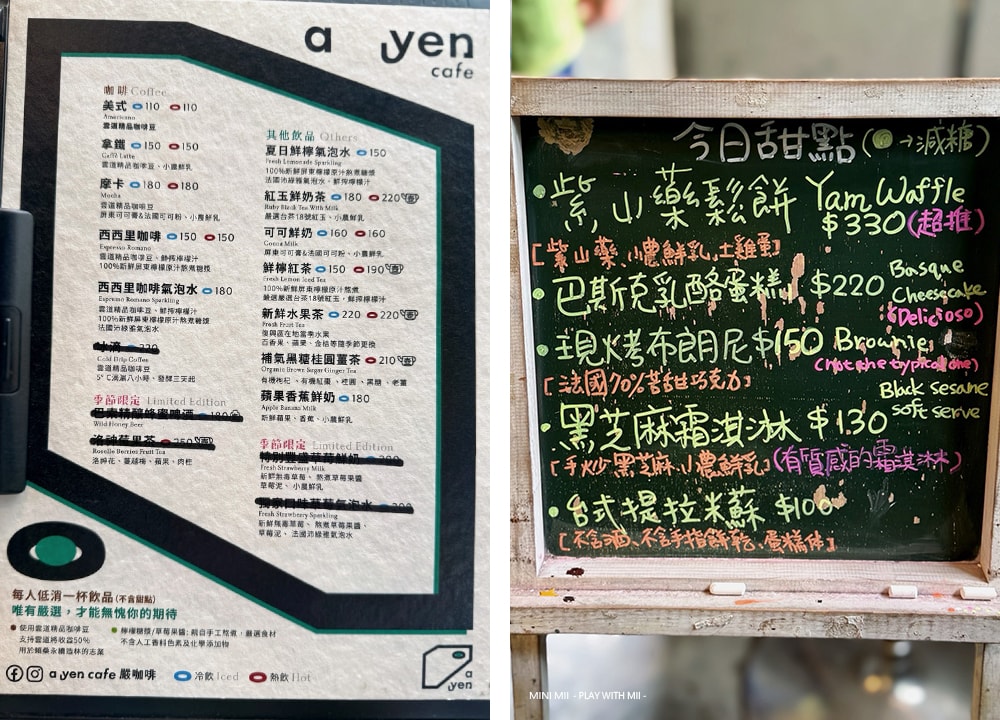 a yen
cafe
咖啡 Coffee
美式 110 110
Americano
雲道精品咖啡豆
拿鐵 150 150
Caffè Latte
雲道精品咖啡豆、小農鮮乳
摩卡 180 180
Mocha
屏東可可膏&法國可可粉、小農鮮乳
西西里咖啡 150 150
Espresso Romano
雲道精品咖啡豆、鮮搾檸檬汁
100%新鮮屏東檸檬原汁熬煮糖漿
西西里咖啡氣泡水 180
Espresso Romano Sparkling
雲道精品咖啡豆、鮮搾檸檬汁
100%新鮮屏東檸檬原汁熬煮糖漿
法國沛綠雅氣泡水
冰滴
Cold Drip Coffee
雲道精品咖啡豆
5°C滴漏八小時、發酵三天起
季節限定 Limited Edition
Wild Honey Beer
洛神莓果茶 250
Roselle Berries Fruit Tea
洛神花、蔓越梅、蘋果、肉桂
其他飲品 Others
夏日鮮檸氣泡水 150
Fresh Lemonade Sparkling
100%新鮮屏東檸檬原汁熬煮糖漿
法國沛綠雅氣泡水、鮮搾檸檬汁
紅玉鮮奶茶 180 220
Ruby Black Tea With Milk
嚴選台茶18號紅玉、小農鮮乳
可可鮮奶 160 160
Cocoa Milk
屏東可可膏&法國可可粉、小農鮮乳
鮮檸紅茶 150 190
Fresh Lemon Iced Tea
100%新鮮屏東檸檬原汁熬煮
嚴選嚴選台茶18號紅玉、鮮搾檸檬汁
新鮮水果茶 220 220
Fresh Fruit Tea
復興區在地當季水果
百香果、蘋果、金桔等隨季節更換
補氣黑糖桂圓薑茶 210
Organic Brown Sugar Ginger Tea
有機枸杞、有機紅棗、桂圓、黑糖、老薑
蘋果香蕉鮮奶 180
Apple Banana Milk
新鮮蘋果、香蕉、小農鮮乳
季節限定 Limited Edition
特別豐盛草莓鮮奶
Fresh Strawberry Milk
新鮮無毒草莓、熬煮草莓果醬
草莓泥、小農鮮乳
獨家口味草莓氣泡水
Fresh Strawberry Sparkling
新鮮無毒草莓、熬煮草莓果醬、
草莓泥、法國沛綠雅氣泡水
每人低消一杯飲品(不含甜點)
唯有嚴選，才能無愧你的期待
使用雲道精品咖啡豆
支持雲道將收益50%
用於賴桑永續造林的志業
檸檬糖漿/草莓果醬：親自手工熬煮，嚴選食材
不含人工香料色素及化學添加物
a yen cafe 嚴咖啡 冷飲 Iced 熱飲 Hot
a
yen
今日甜點 (→減糖)
紫山藥鬆餅 Yam Waffle
$330 (超推)
[紫山藥、小農鮮乳、土雞蛋]
巴斯克乳酪蛋糕 $220 Basque
Cheesecake
(Delicioso)
現烤布朗尼 $150 Brownie
(not the typical one)
[法國70%苦甜巧克力]
黑芝麻霜淇淋 $130 Black sesane
soft serve
[手炒黑芝麻、小農鮮乳] (有質感的霜淇淋)
台式提拉米蘇 $100
[不含酒、不含手指餅乾、蛋糕体]
MINI MII - PLAY WITH MII -